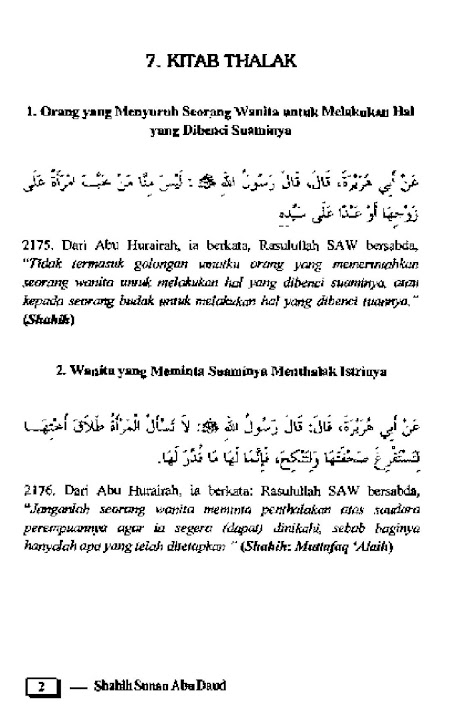 7. KITAB THALAK
1. Orang yang Menyuruh Seorang Wanita untuk Melakukan Hal
yang Dibenci Suaminya
عَنْ أَبِي هُرَيْرَةَ، قَالَ، قَالَ رَسُولُ اللهِ ﷺ : لَيْسَ مِنَّا مَنْ خَبَّبَ امْرَأَةً عَلَى
زَوْجِهَا أَوْ عَبْدًا عَلَى سَيِّدِهِ
2175. Dari Abu Hurairah, ia berkata, Rasulullah SAW bersabda,
"Tidak termasuk golongan umatku orang yang memerintahkan
seorang wanita untuk melakukan hal yang dibenci suaminya, atau
kepada seorang budak untuk melakukan hal yang dibenci tuannya."
(Shahih)
2. Wanita yang Meminta Suaminya Menthalak Istrinya
عَنْ أَبِي هُرَيْرَةَ، قَالَ: قَالَ رَسُولُ اللهِ ﷺ: لاَ تَسْأَلُ الْمَرْأَةُ طَلاَقَ أُخْتِهَا
لِتَسْتَفْرِغَ صَحْفَتَهَا وَلِتَنْكِحَ، فَإِنَّمَا لَهَا مَا قُدِّرَ لَهَا.
2176. Dari Abu Hurairah, ia berkata: Rasulullah SAW bersabda,
"Janganlah seorang wanita meminta penthalakan atas saudara
perempuannya agar ia segera (dapat) dinikahi, sebab baginya
hanyalah apa yang telah ditetapkan." (Shahih: Muttafaq 'Alaih)
2 — Shahih Sunan Abu Daud